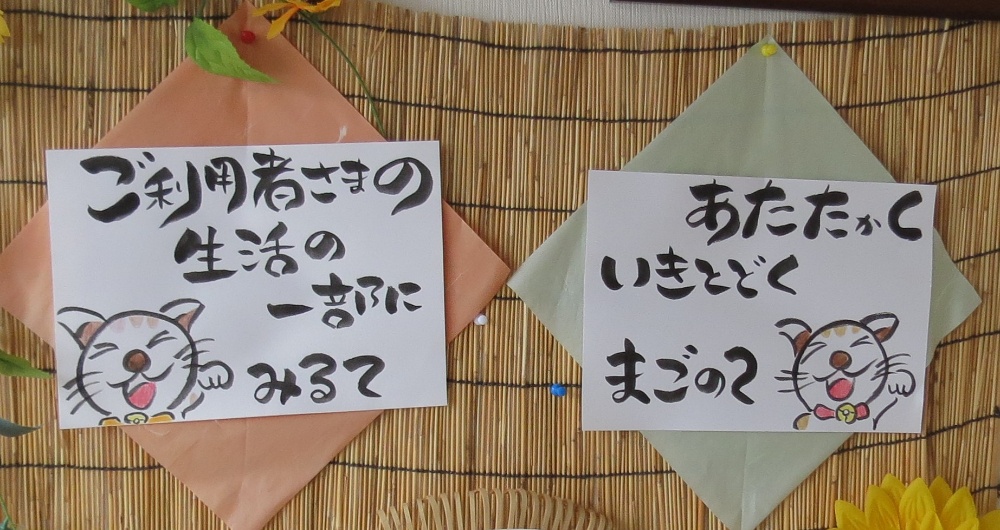 ご利用者さまの
生活の
一部に
みるて
あたたかく
いきとどく
まごのて